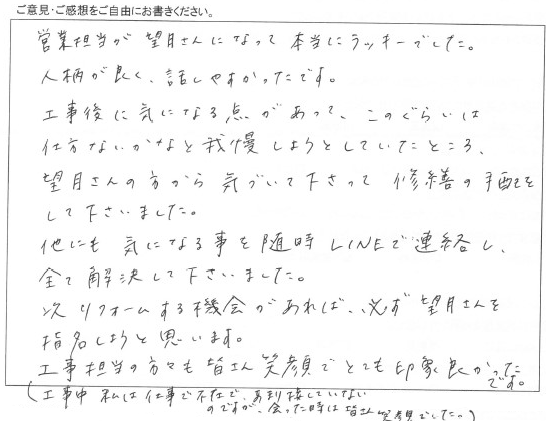 ご意見・ご感想をご自由にお書きください。
営業担当が望月さんになって本当にラッキーでした。
人柄が良く、話しやすかったです。
工事後に気になる点があって、このぐらいは
仕方ないかなと我慢しようとしていたところ、
望月さんの方から気づいて下さって修繕の手配を
して下さいました。
他にも気になる事を随時LINEで連絡し、
全て解決して下さいました。
次リフォームする機会があれば、必ず望月さんを
指名しようと思います。
工事担当の方々も皆さん笑顔でとても印象良かった
です。
(工事中 私は仕事で不在で、接していない
のですが、会った時は皆さん笑顔でした。)